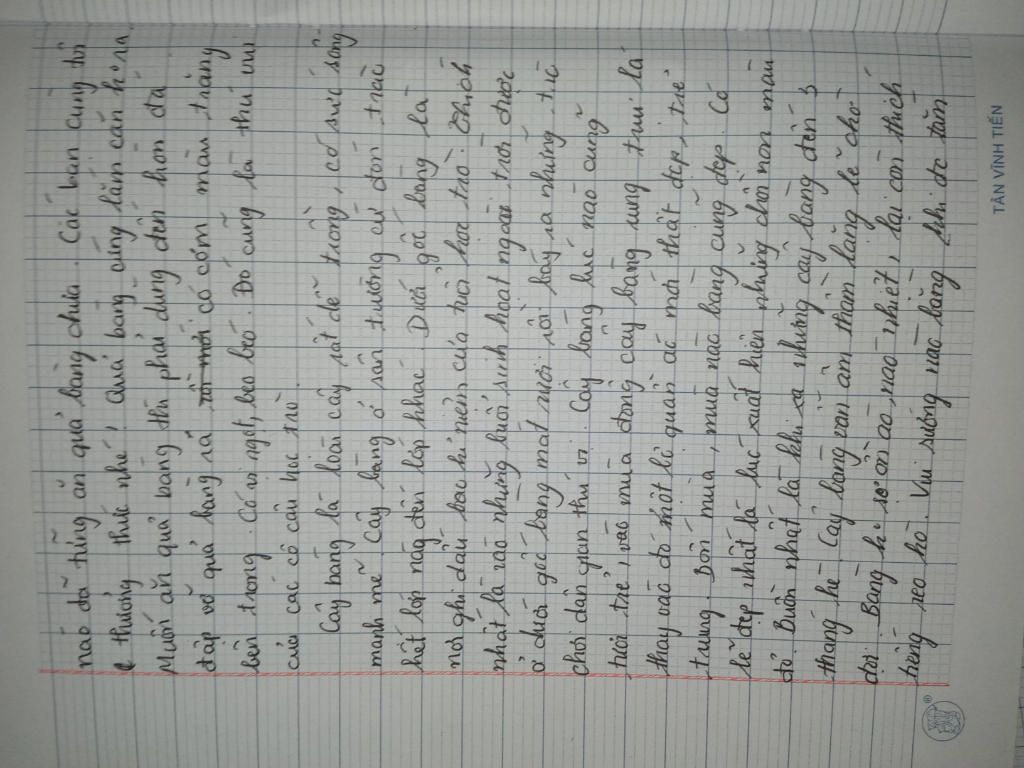 nào đã từng ăn quả bàng chưa. Các bạn cùng tôi
thưởng thức nhé! Quả bàng cứng lắm cắn hỏng răng.
Muốn ăn quả bàng thì phải dùng đến hòn đá
đập vỡ quả bàng ra có cơm màu trắng
bên trong. Có vị ngọt, beo béo. Đó cũng là thú vui
của các cô cậu học trò.
Cây bàng là loài cây rất dễ trồng, có sức sống
mạnh mẽ. Cây bàng ở sân trường cứ đón trào
hết lớp này đến lớp khác. Dưới gốc bàng là
nơi ghi dấu bao kỉ niệm của tuổi học trò. Thích
nhất là vào những buổi sinh hoạt ngoài trời được
ở dưới gốc bàng mát rượi rồi bày ra những trò
chơi dân gian thú vị. Cây bàng lúc nào cũng
tươi trẻ, vào mùa đông cây bàng rụng trụi lá
thay vào đó một bộ quần áo mới thật đẹp, trẻ
trung. Bốn mùa, mùa nào bàng cũng đẹp. Có
lẽ đẹp nhất là lúc xuất hiện những chồi non màu
đỏ. Buồn nhất là khi xa những cây bàng đến 3
tháng hè. Cây bàng vẫn âm thầm lặng lẽ chờ
đợi. Bàng hè ồn ào, náo nhiệt, lại còn thích
tiếng reo hò. Vui sướng nào bằng khi đc tán
TÂN VĨNH TIẾN